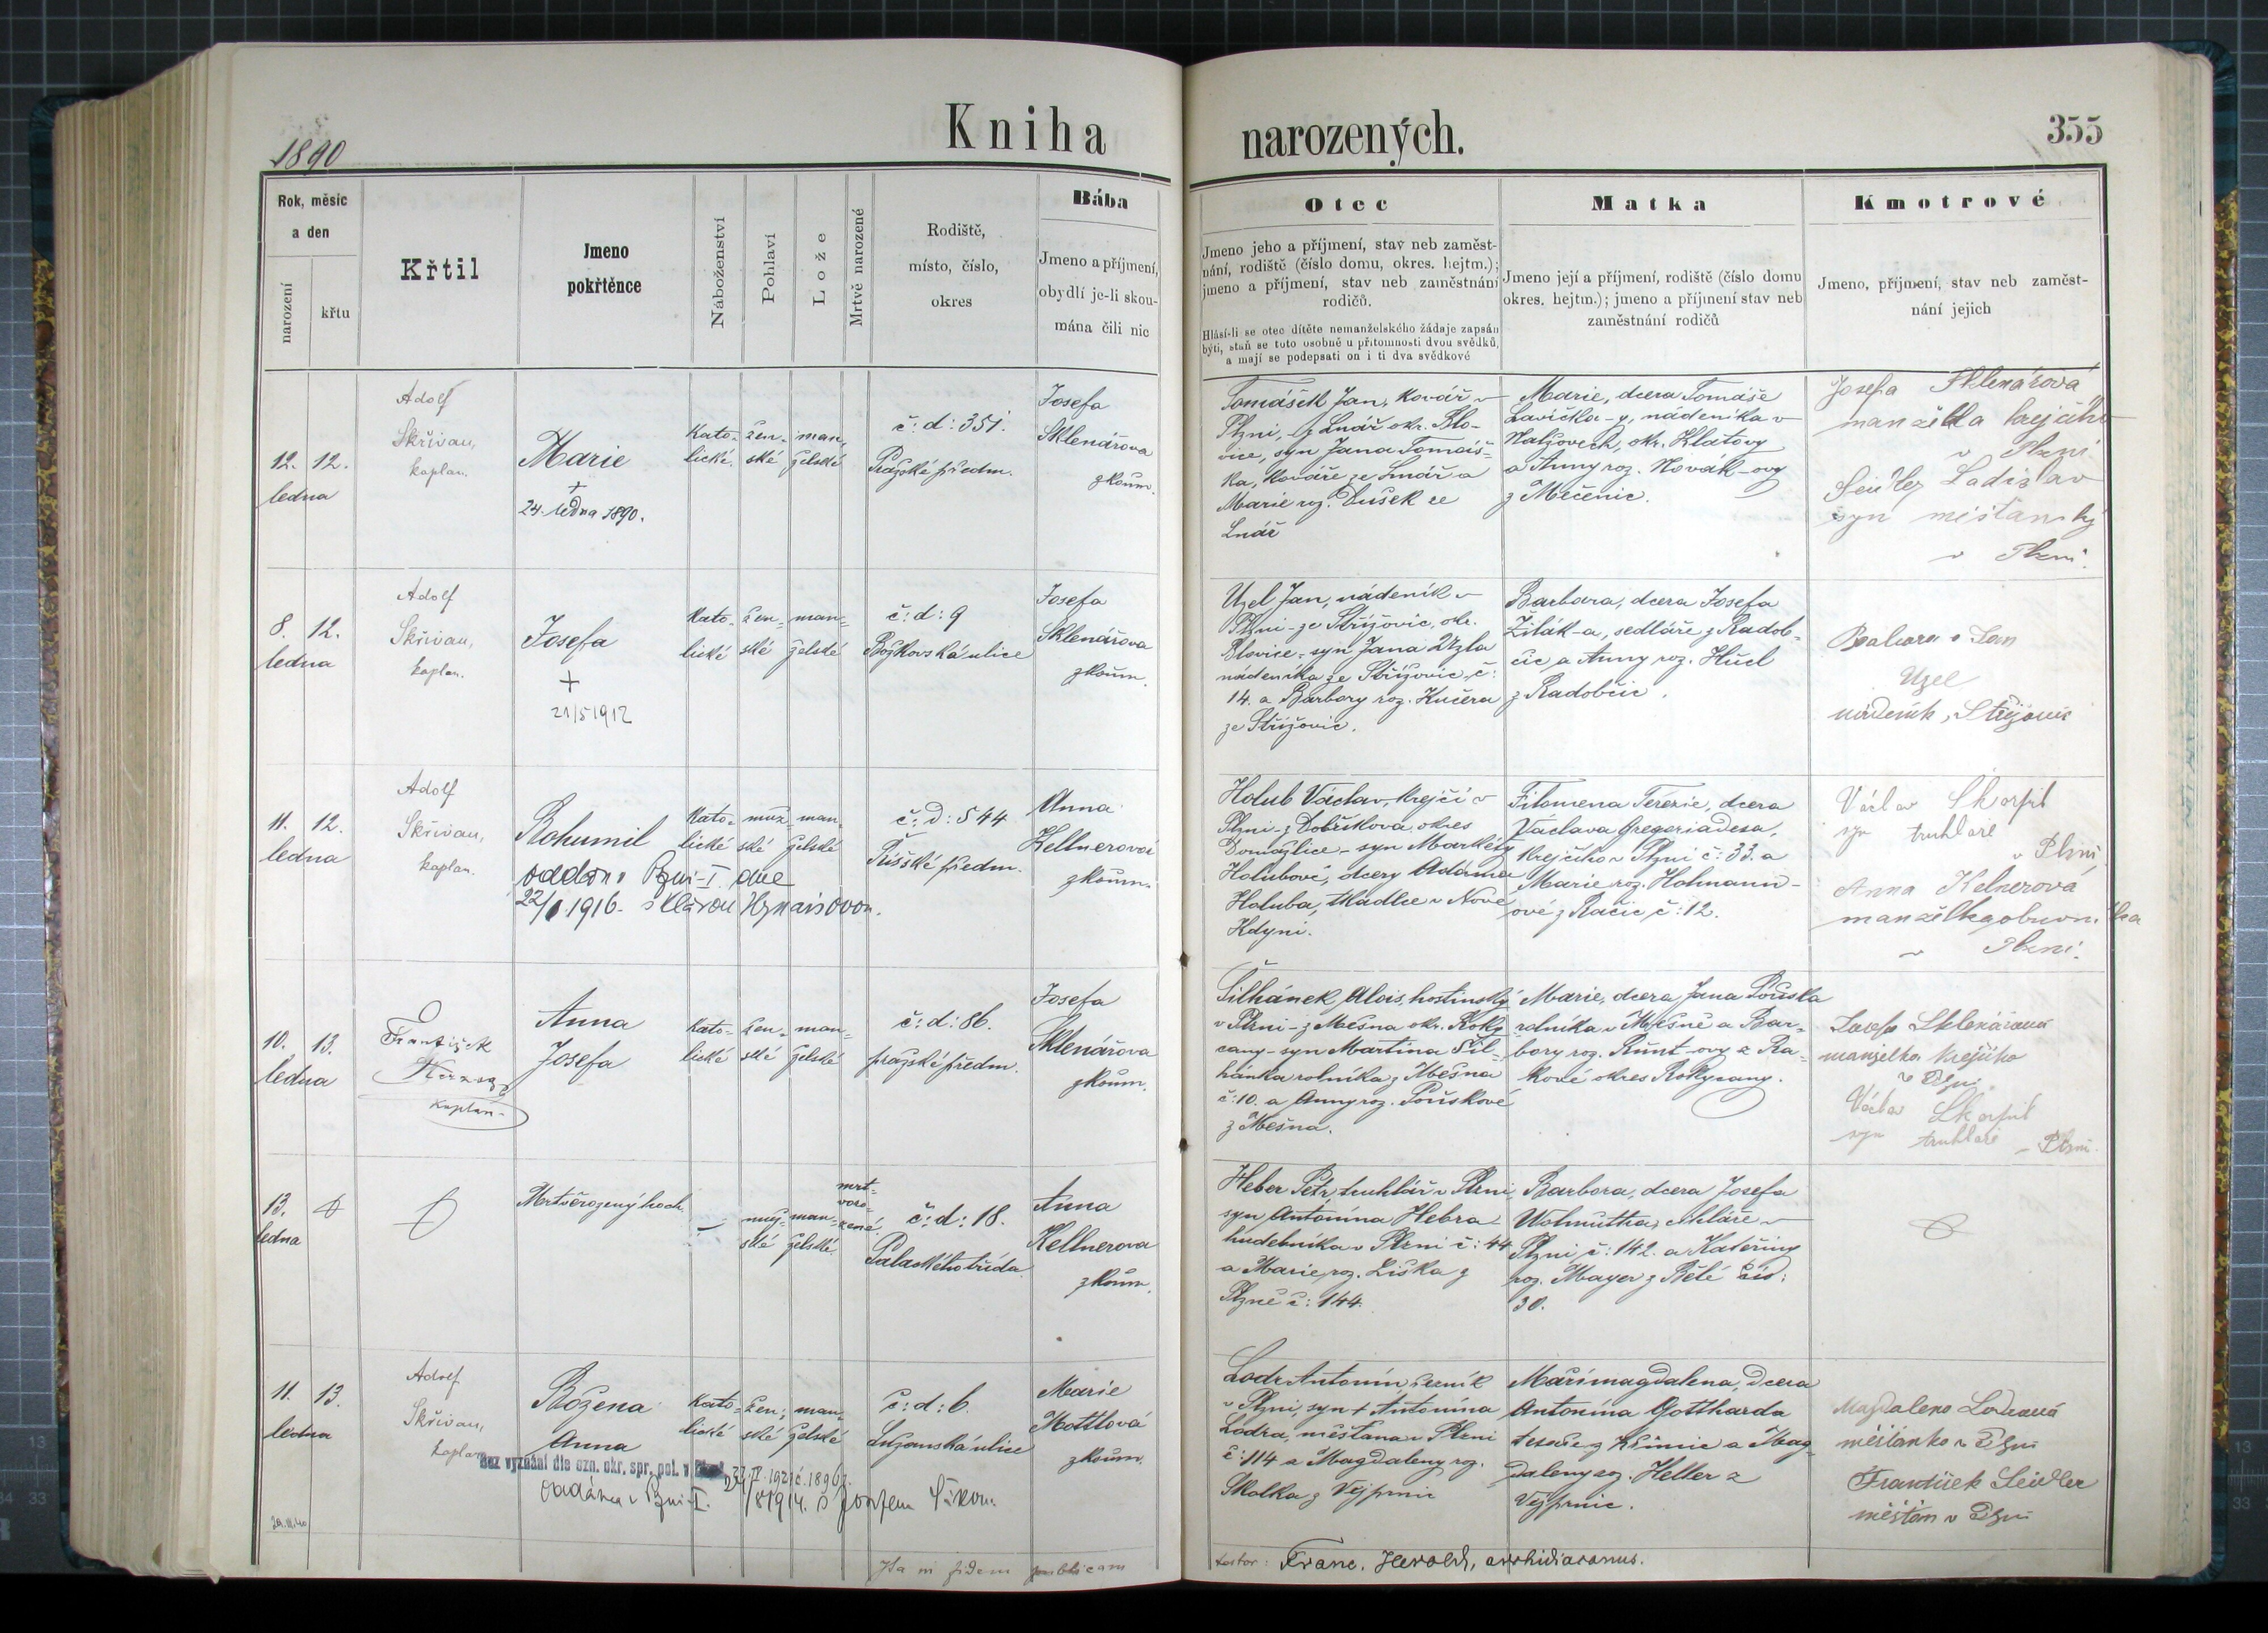 1890
Kniha narozených.
355
Rok, měsíc
a den
narození
křtu
Křtil
Jmeno
pokřtěnce
Náboženství
Pohlaví
Lože
Mrtvě narozené
Rodiště,
místo, číslo,
okres
Bába
Jmeno a příjmení,
obydlí je-li skou-
mána čili nic
Otec
Jmeno jeho a příjmení, stav neb zaměst-
nání, rodiště (číslo domu, okres. hejtm.);
jmeno a příjmení, stav neb zaměstnání
rodičů.
Hlásí-li se otec dítěte nemanželského žádaje zapsán
býti, staň se toto osobně u přítomnosti dvou svědků,
a mají se podepsati on i ti dva svědkové
Matka
Jmeno její a příjmení, rodiště (číslo domu
okres. hejtm.); jmeno a příjmení stav neb
zaměstnání rodičů
Kmotrové
Jmeno, příjmení, stav neb zaměst-
nání jejich
12. 12.
ledna
Adolf
Skřivan,
kaplan.
Marie
+
24. ledna 1890.
Kato-
lické
žen-
ské
man-
želské
č: d: 351.
Pražské předm.
Josefa
Sklenářova
zkoum.
Tomášek Jan, kovář v
Plzni, ze Lnář okr. Blo-
vice, syn Jana Tomáš-
ka, kováře ze Lnář a
Marie roz. Dušek ze
Lnář
Marie, dcera Tomáše
Lavička-y, nádeníka v
Nalžovech, okr. Klatovy
a Anny roz. Novák-ovy
z Měčenic.
Josefa Sklenářová
manželka krejčího
v Plzni
Ladislav
syn měšťanský
v Plzni.
8. 12.
ledna
Adolf
Skřivan,
kaplan.
Josefa
+
21/5 1912
Kato-
lické
žen-
ské
man-
želské
č: d: 9
Božkovská ulice
Josefa
Sklenářova
zkoum.
Uzel Jan, nádeník v
Plzni - ze Střížovic, okr.
Blovice - syn Jana Uzla
nádeníka ze Střížovic č:
14. a Barbory roz. Kučera
ze Střížovic.
Barbora, dcera Josefa
Žilák-a, sedláře z Radob-
čic a Anny roz. Hůcl
z Radobčic.
Jan
Uzel
nádeník, Střížovic
11. 12.
ledna
Adolf
Skřivan,
kaplan.
Bohumil
oddán v Plzni-I. dne
22/1 1916. s Klárou
Kato-
lické
muž-
ské
man-
želské
č: d: 544
předm.
Anna
Kellnerova
zkoum.
Holub Václav, krejčí v
Plzni - z Dobříkova, okres
Domažlice - syn Markéty
Holubové, dcery Adama
Holuba, tkadlce v Nové
Kdyni.
Filomena Terezie, dcera
Václava Gregoriadesa,
krejčího v Plzni č: 33. a
Marie roz. Hohmann-
ové z Račic č: 12.
Václav Škorpil
syn truhláře
v Plzni,
Anna Kelnerová
manželka obuvníka
v Plzni.
10. 13.
ledna
František
Herzog
kaplan
Anna
Josefa
Kato-
lické
žen-
ské
man-
želské
č: d: 86.
pražské předm.
Josefa
Sklenářova
zkoum.
Šilhánek Alois, hostinský
v Plzni - z Mešna okr. Roky-
cany - syn Martina Šil-
hánka rolníka z Mešna
č: 10. a Anny roz. Pouskové
z Mešna.
Marie, dcera Jana Pouska
rolníka v Mešně a Bar-
bory roz. Runt-ovy z Ra-
kové okres Rokycany.
Josefa Sklenářová
manželka krejčího
v Plzni
Václav Škorpil
syn truhláře v Plzni.
13.
ledna
Mrtvěrozený hoch
—
muž-
ské
man-
želské
mrt-
voro-
zené
č: d: 18.
Palackého třída
Anna
Kellnerova
zkoum.
Heber Petr, truhlář v Plzni,
syn Antonína Hebra
hudebníka v Plzni č: 44
a Marie roz. Liška z
Plzně č: 144.
Barbora, dcera Josefa
Wohlmutha, v
Plzni č: 142. a Kateřiny
roz. Mayer z Bělé čís:
30.
11. 13.
ledna
Adolf
Skřivan,
kaplan
Božena
Anna
Bez vyznání dle ozn. okr. spr. pol. v
oddána v Plzni-I. /8 1914. s Josefem
Kato-
lické
žen-
ské
man-
želské
č: d: 6
ulice
Marie
Mottlová
zkoum.
Lodr Antonín, řezník
v Plzni, syn + Antonína
Lodra, měšťana v Plzni
č: 114 a Magdaleny roz.
Skalka z Vejprnic
Maři magdalena, dcera
Antonína Gottharda
z Křimic a Mag-
daleny roz. Heller z
Vejprnic.
Magdalena Lodrová
měšťanka v Plzni
František Seidler
měšťan v Plzni
Ita in fidem publicam
testor: Franc. Herold, archidiaconus.